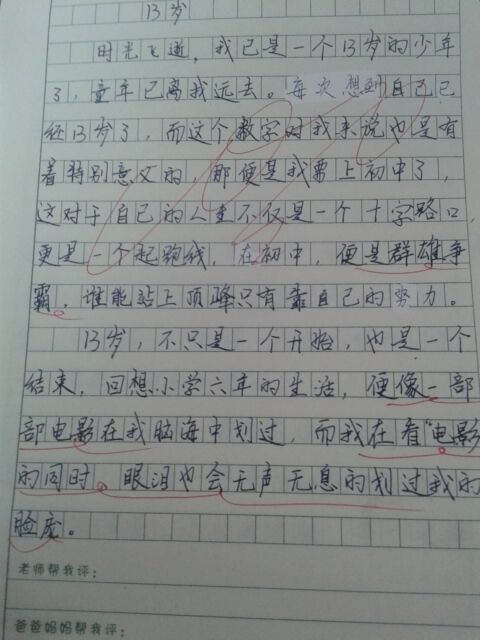 13岁
时光飞逝，我已是一个13岁的少年
了，童年已离我远去。每次想到自己已
经13岁了，而这个数字对我来说也是有
着特别意义的，那便是我要上初中了，
这对于自己的人生不仅是一个十字路口，
更是一个起跑线，在初中，便是群雄争
霸。谁能站上顶峰只有靠自己的努力。
13岁，不只是一个开始，也是一个
结束，回想小学六年的生活，便像一部
部电影在我脑海中划过，而我在看“电影
的同时。眼泪也会无声无息的划过我的
脸庞。
老师帮我评：
爸爸妈妈帮我评：